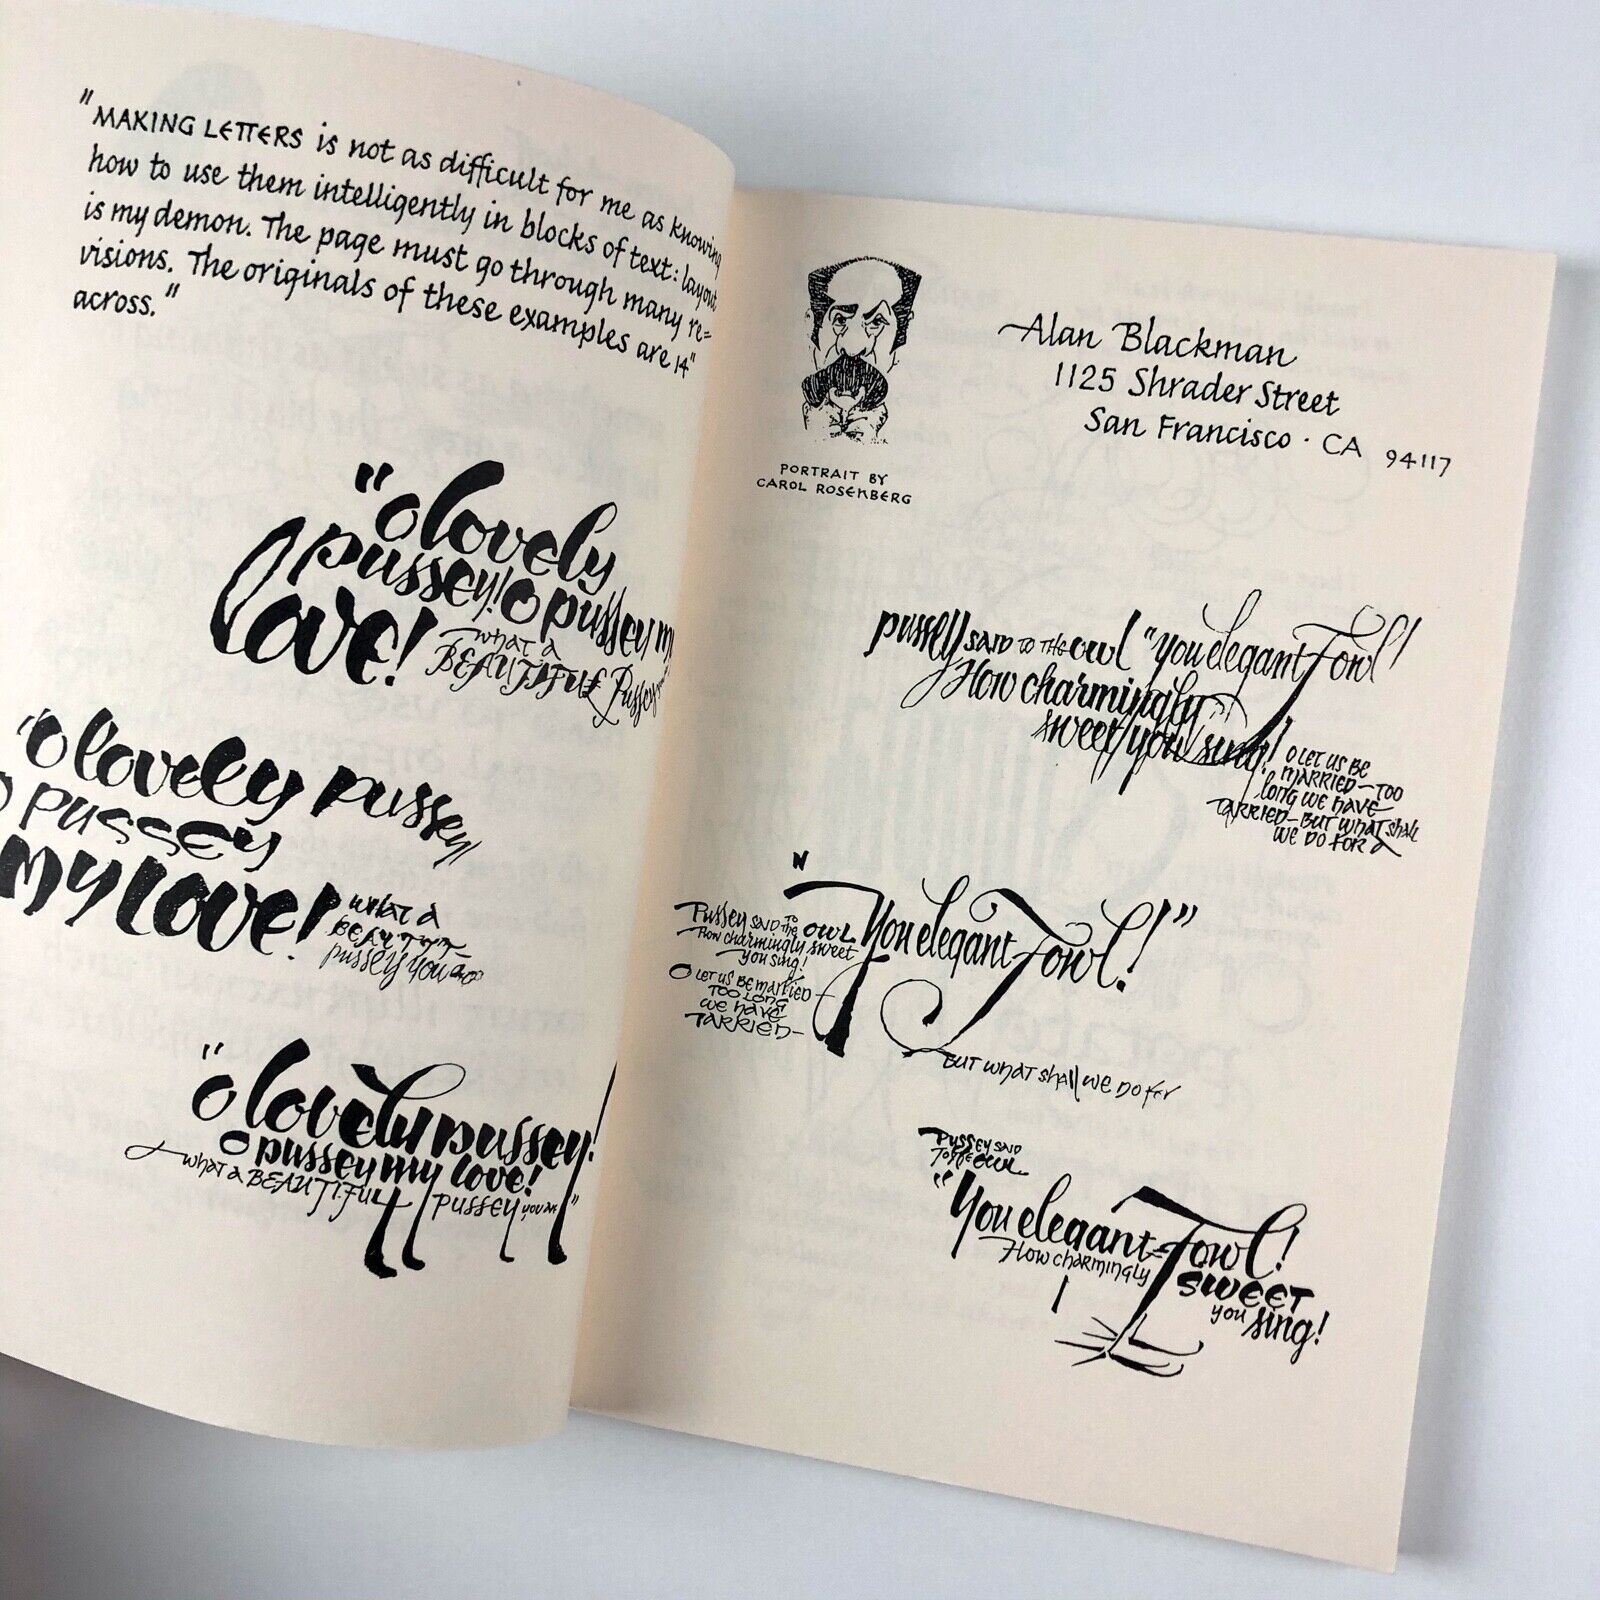 "MAKING LETTERS is not as difficult for me as knowing
how to use them intelligently in blocks of text: layout
is my demon. The page must go through many re=
visions. The originals of these examples are 14"
across."
"O lovely
pussey! O pussey my
love!
what a
BEAUTIFUL Pussey
"O lovely pussey!
O pussey
my love!
what a
pussey you
"O lovely pussey!
O pussey my love!
what a BEAUTIFUL pussey you are"
PORTRAIT BY
CAROL ROSENBERG
Alan Blackman
1125 Shrader Street
San Francisco · CA 94117
pussey SAID TO THE OWL "you elegant Fowl!
How charmingly
sweet you sing!
O LET US BE
MARRIED—TOO
LONG WE HAVE
TARRIED—BUT WHAT shall
WE DO FOR A
N
Pussey SAID TO THE OWL
"You elegant Fowl!"
How charmingly sweet
you sing!
O LET US BE married—
TOO LONG
WE HAVE
TARRIED—
BUT WHAT shall WE DO for
PUSSEY SAID
TO THE OWL
"You elegant Fowl!
How CHARMINGLY
SWEET
you sing!